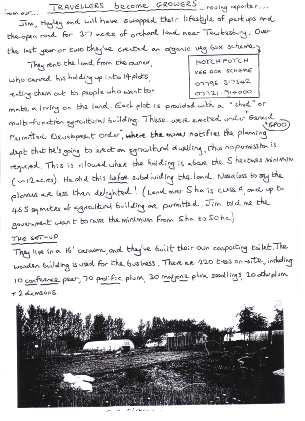 from our... TRAVELLERS become GROWERS ...roving reporter...
Jim, Hayley and will have swapped their lifestyle of partups and
the open road for 3.7 acres of orchard land near Tewkesbury. Over
the last year or two they've created an organic veg box scheme.
They rent the land from the owner,
who carved his holding up into 14 plots,
renting them out to people who want to
make a living on the land. Each plot is provided with a "shed" or
NOTCH POTCH
VEG BOX SCHEME
07796 317542
07721 914000
multi-function agricultural building. These were erected under General
Permitted Development Order, where the owner notifies the planning
(GPDO)
dept that he's going to erect an agricultural dwelling, thus no permission is
required. This is allowed when the holding is above the 5 hectares minimum
(~12 acres). He did this before subdividing the land. Needless to say the
planners are less than delighted! (Land over 5ha is class A, and up to
465 sq metres of agricultural building are permitted. Jim told me the
government want to raise the minimum from 5ha to 50ha)
THE SET-UP
They live in a 16' caravan, and they've built their own composting toilet. The
wooden building is used for the business. There are 220 trees on-site, including
10 conference pear, 70 prolific plum, 30 marjorie plum seedlings 20 other plum
+ 2 damsons.